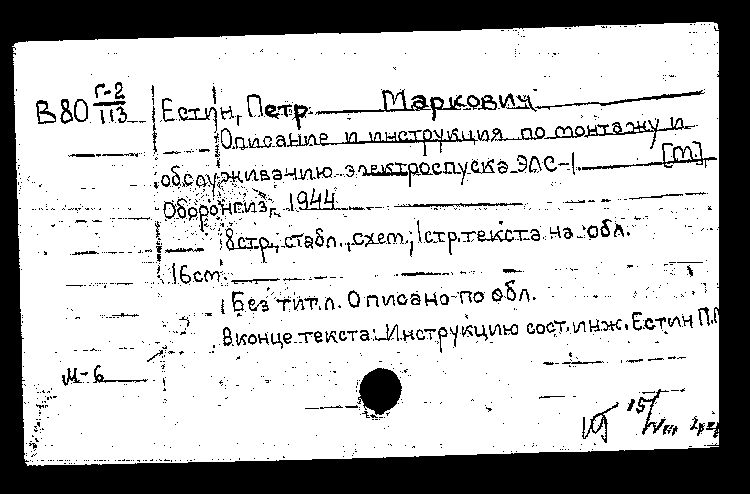 В80 Г-2/113 Естин, Петр Маркович
Описание и инструкция по монтажу и
обслуживанию электроспуска ЭЛС-1 [М.]
Оборонгиз, 1944
8 стр., с табл., схем; 1 стр. текста на обл.
16 см.
Без тит. л. Описано по обл.
В конце текста: Инструкцию сост. инж. Естин П.
М-6
15/